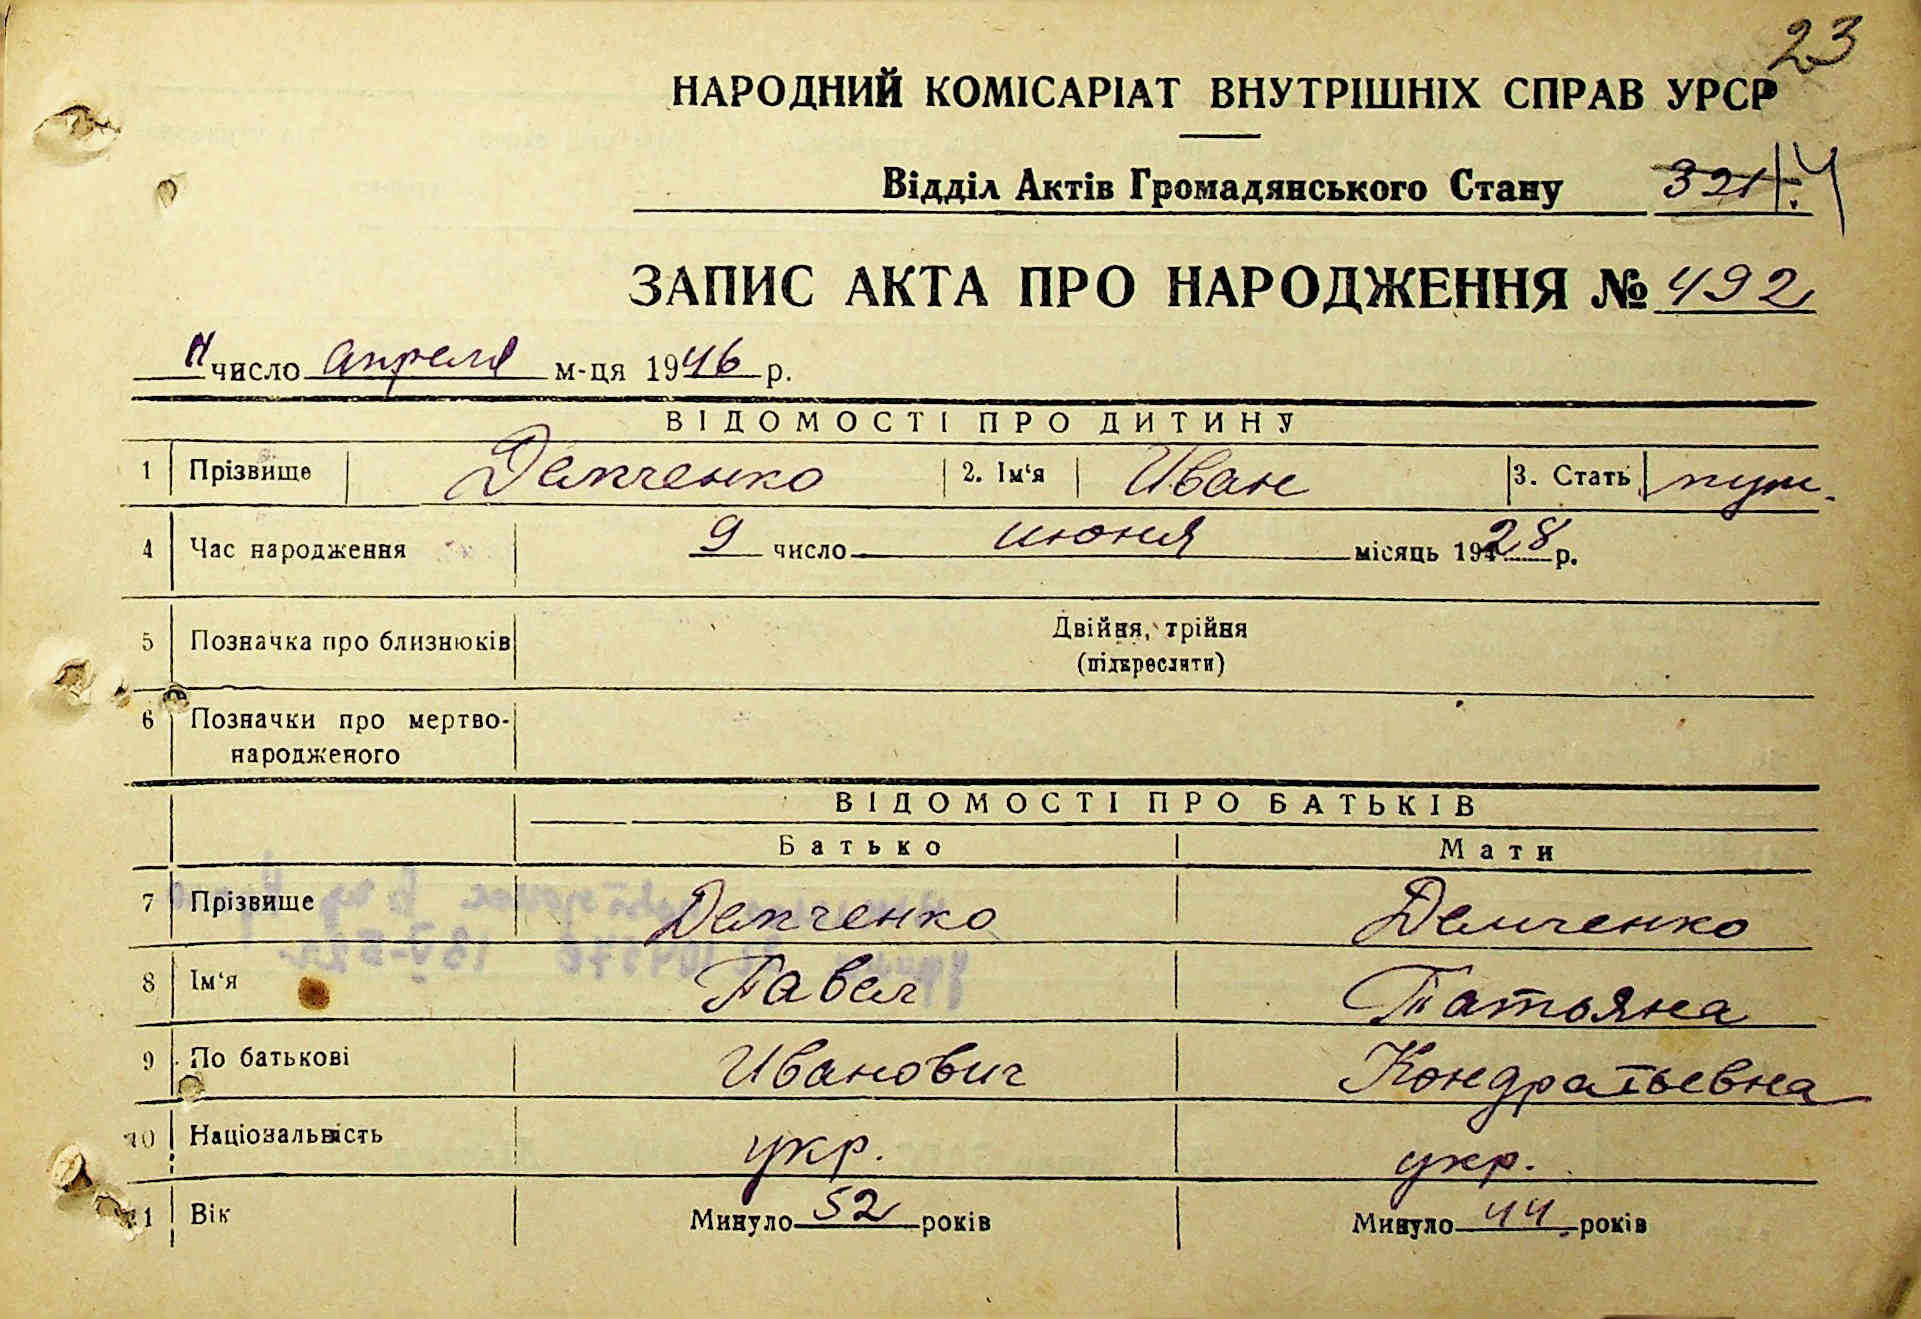 23
НАРОДНИЙ КОМІСАРІАТ ВНУТРІШНІХ СПРАВ УРСР
Відділ Актів Громадянського Стану 321 4
ЗАПИС АКТА ПРО НАРОДЖЕННЯ № 492
число апреля м-ця 1946 р.
ВІДОМОСТІ ПРО ДИТИНУ
1 Прізвище Демченко 2. Ім'я Иван 3. Стать муж.
4 Час народження 9 число июня місяць 1928 р.
5 Позначка про близнюків Двійня, трійня
(підкреслити)
6 Позначки про мертво-
народженого
ВІДОМОСТІ ПРО БАТЬКІВ
Батько Мати
7 Прізвище Демченко Демченко
8 Ім'я Павел Татьяна
9 По батькові Иванович Кондратьевна
10 Національність укр. укр.
11 Вік Минуло 52 років Минуло 44 років